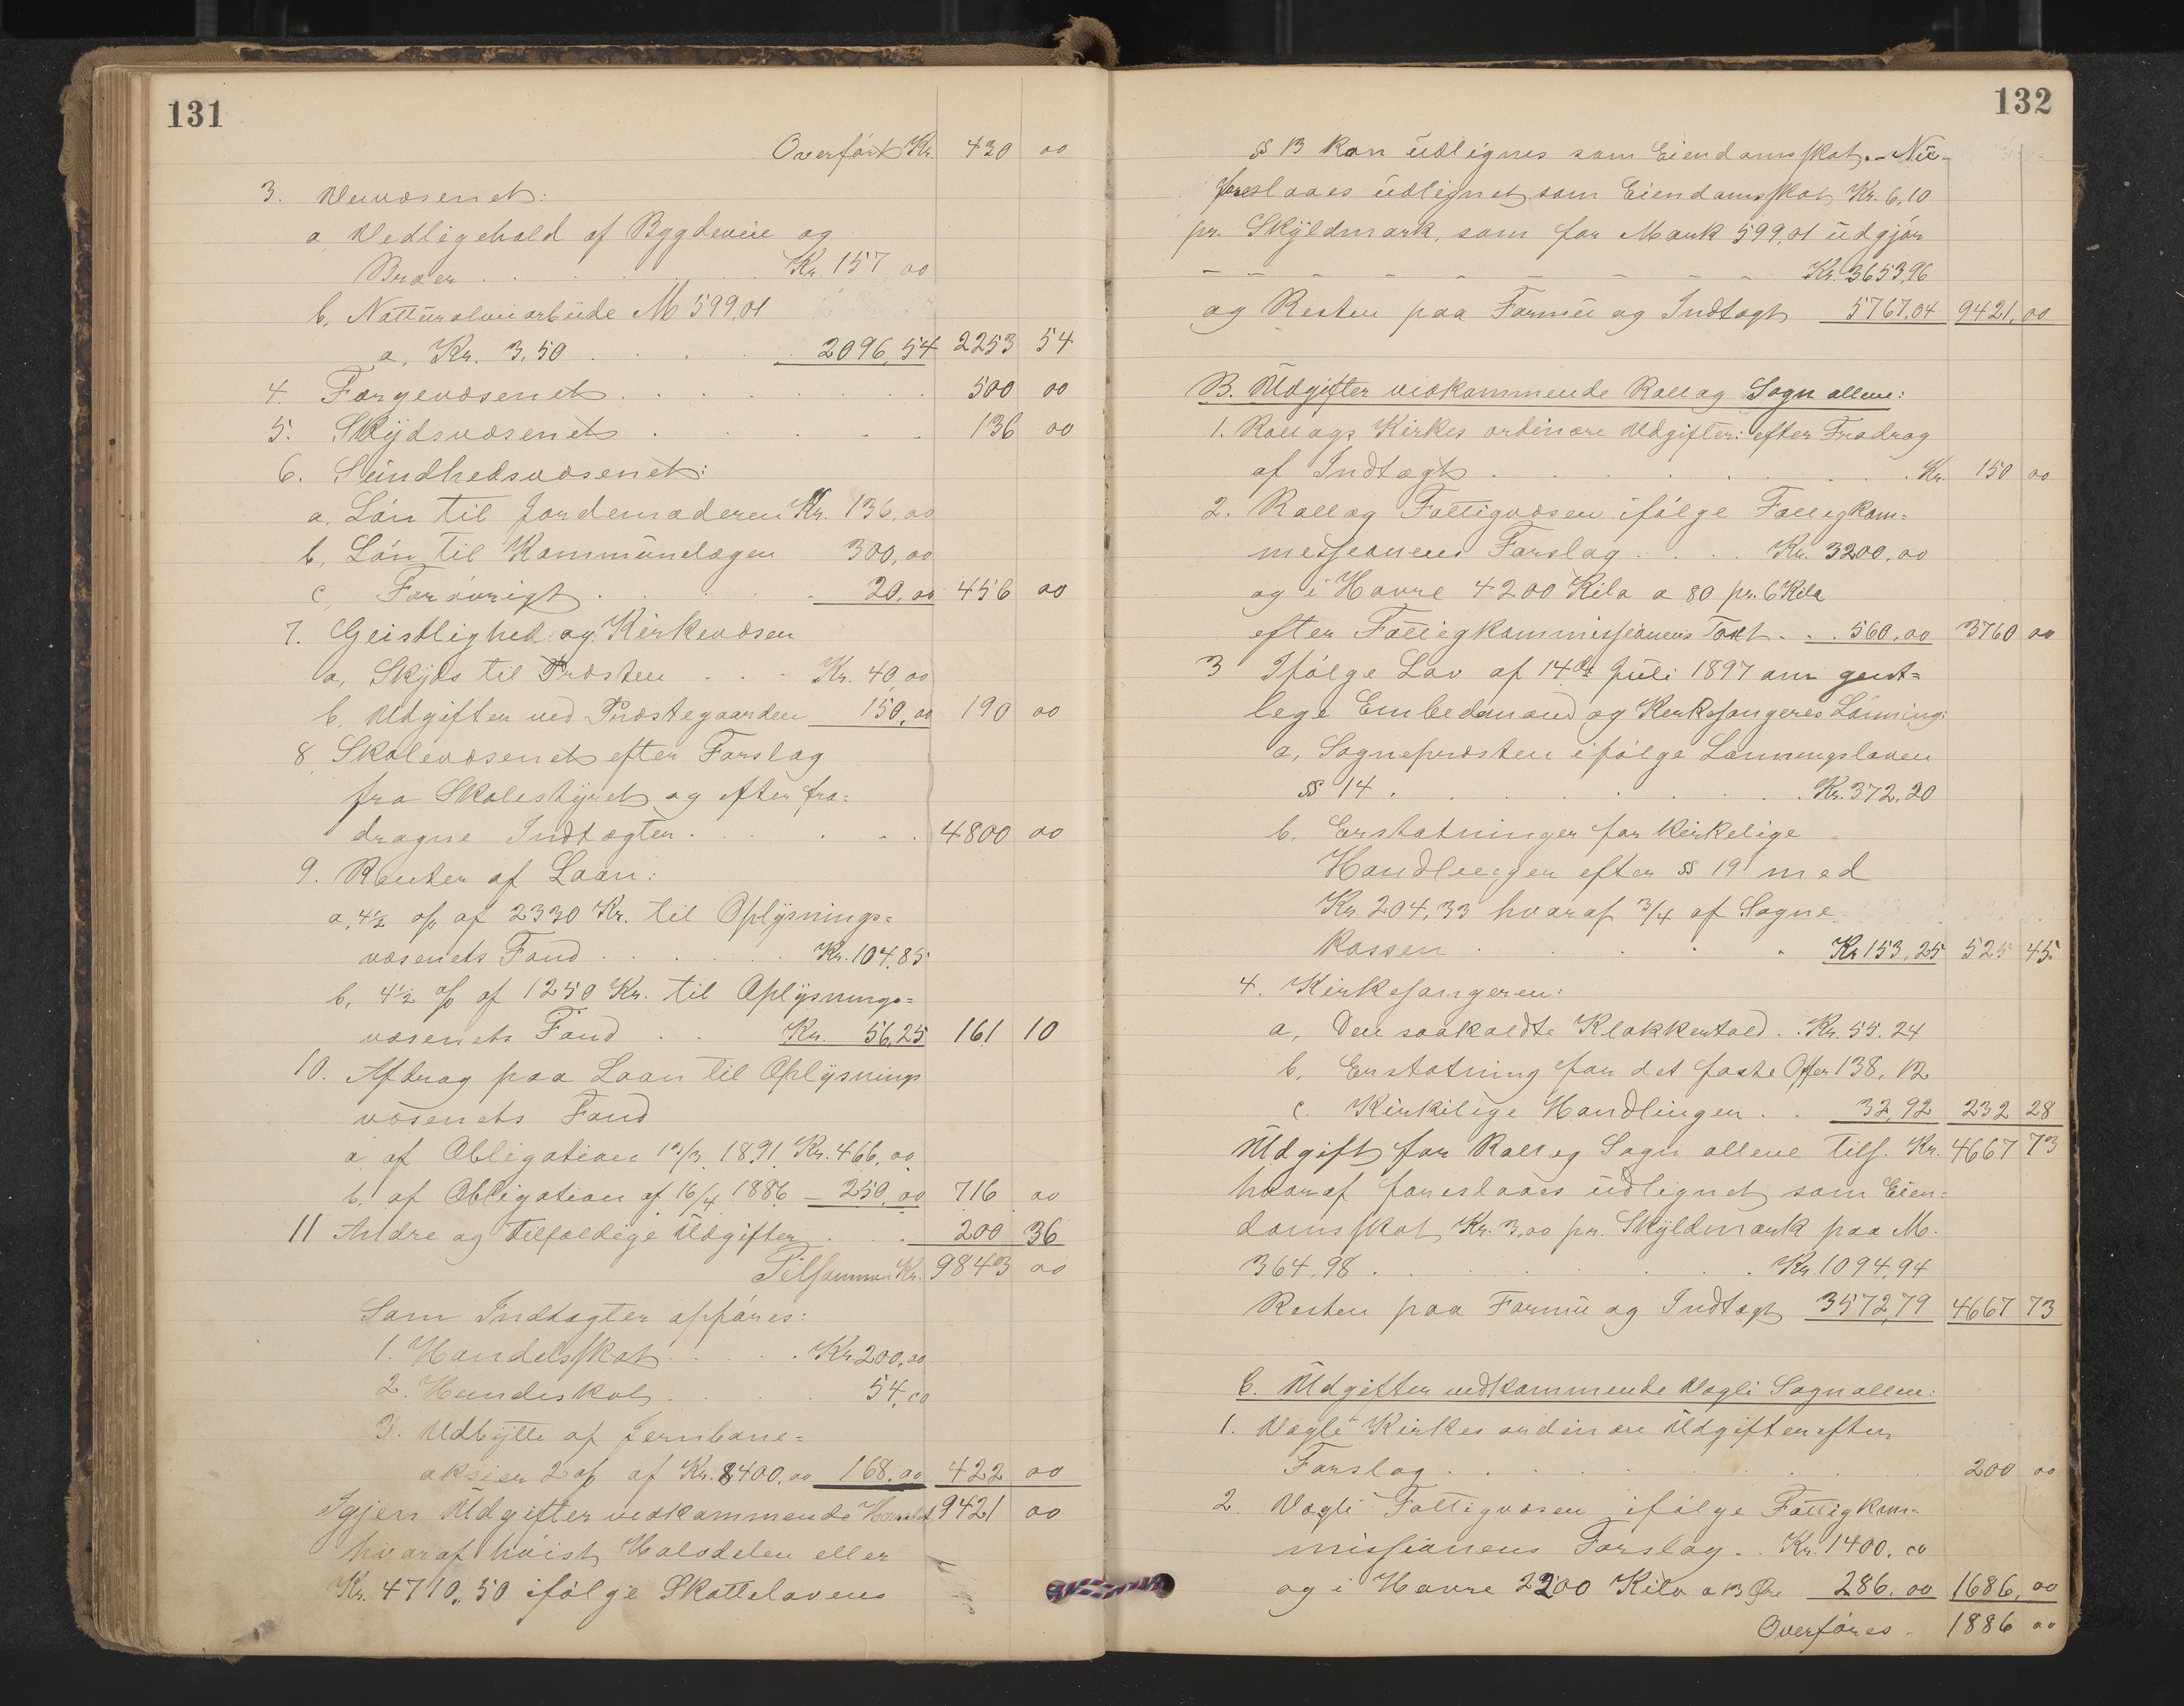 131
Overført Kr. 420 00
3. Veivæsenet:
a Vedligehold af Bygdeveie og
Broer . . . . . Kr. 157,00
b, Natturalveiarbeide M 599,01
a, Kr. 3,50 . . . . . 2096,54 2253 54
4. Færgevæsenet . . . . . . . 500 00
5. Skydsvæsenet . . . . . 136 00
6. Sundhedsvæsenet:
a, Løn til Jordemoderen Kr. 136,00
b, Løn til Kommunelægen 300,00
c, Forøvrigt . . . . . 20,00 456 00
7. Geistlighed og Kirkevæsen
a, Skyds til Præsten . . . Kr. 40,00
b, Udgifter ved Præstegaarden 150,00 190 00
8 Skolevæsenet efter Forslag
fra Skolestyret og efter fra=
dragne Indtægter . . . . . 4800 00
9. Renter af Laan:
a, 4½ % af 2330 Kr. til Oplysnings=
væsenets Fond . . . . . . Kr. 104,85
b, 4½ % af 1250 Kr. til Oplysnings=
væsenets Fond . . Kr. 56,25 161 10
10. Afdrag paa Laan til Oplysnings
væsenets Fond
a af Obligation 13/3 1891 Kr. 466,00
b, af Obligation af 16/4 1886 – 250,00 716 00
11 Andre og tilfældige Udgifter . . . 200 36
Tilsammen Kr. 9843 00
Som Indtægter opføres:
1. Handelsskat . . . . . Kr 200,00
2. Hundeskat . . . . 54,00
3. Udbytte af Jernbane=
aksier 2 % af Kr. 8400,00 168,00 422 00
Igjen Udgifter vedkommende Herredet 9421 00
hvoraf høist Halvdelen eller
Kr. 4710,50 ifølge Skattelovens
132
§ 13 kan udlignes som Eiendomsskat. – Nu
foreslaaes udlignet som Eiendomsskat Kr. 6,10
pr. Skyldmark, som for Mark 599,01 udgjør
– – – – – – – – Kr. 3653,96
og Resten paa Formue og Indtægt 5767,04 9421,00
B. Udgifter vedkommende Rollag Sogn allene:
1. Rollags Kirkes ordinære Udgifter: efter Fradrag
af Indtægt . . . . . . . . Kr. 150 00
2. Rollag Fattigvæsen ifølge Fattigkom=
messionens Forslag . . . . Kr. 3200,00
og i Havre 4200 Kilo a 80 pr. 6 Kilo
efter Fattigkommissionens Taxt . . . 560,00 3760 00
3 Ifølge Lov af 14de Juli 1897 om geist=
lege Embedsmænd og Kirkesangeres Lønning:
a, Sognepræsten ifølge Lønningsloven
§ 14 . . . . . . . . Kr. 372,20
b, Erstatninger for kirkelige
Handlinger efter § 19 med
Kr. 204,33 hvoraf 3/4 af Sogne
kassen . . . . . Kr 153,25 525 45
4. Kirkesangeren:
a, Den saakaldte Klokkertold . . Kr. 55.24
b, Erstatning for det faste Offer 138,12
c. Kirkilige Handlinger . . 32,92 232 28
Udgift for Rollag Sogn allene tils. Kr. 4667 73
hvoraf foreslaaes udlignet som Eien=
domsskat Kr. 3,00 pr. Skyldmark paa M.
364,98 . . . . . . . Kr. 1094,94
Resten paa Formue og Indtægt 3572,79 4667 73
C. Udgifter vedkommende Vægli Sogn allene:
1. Vægli Kirkes ordinære Udgifter efter
Forslag . . . . . . . . 200 00
2 Vægli Fattigvæsen ifølge Fattigkom=
missionens Forslag . . Kr. 1400,00
og i Havre 2200 Kilo a 13 Øre 286,00 1686,00
Overføres – 1886 00